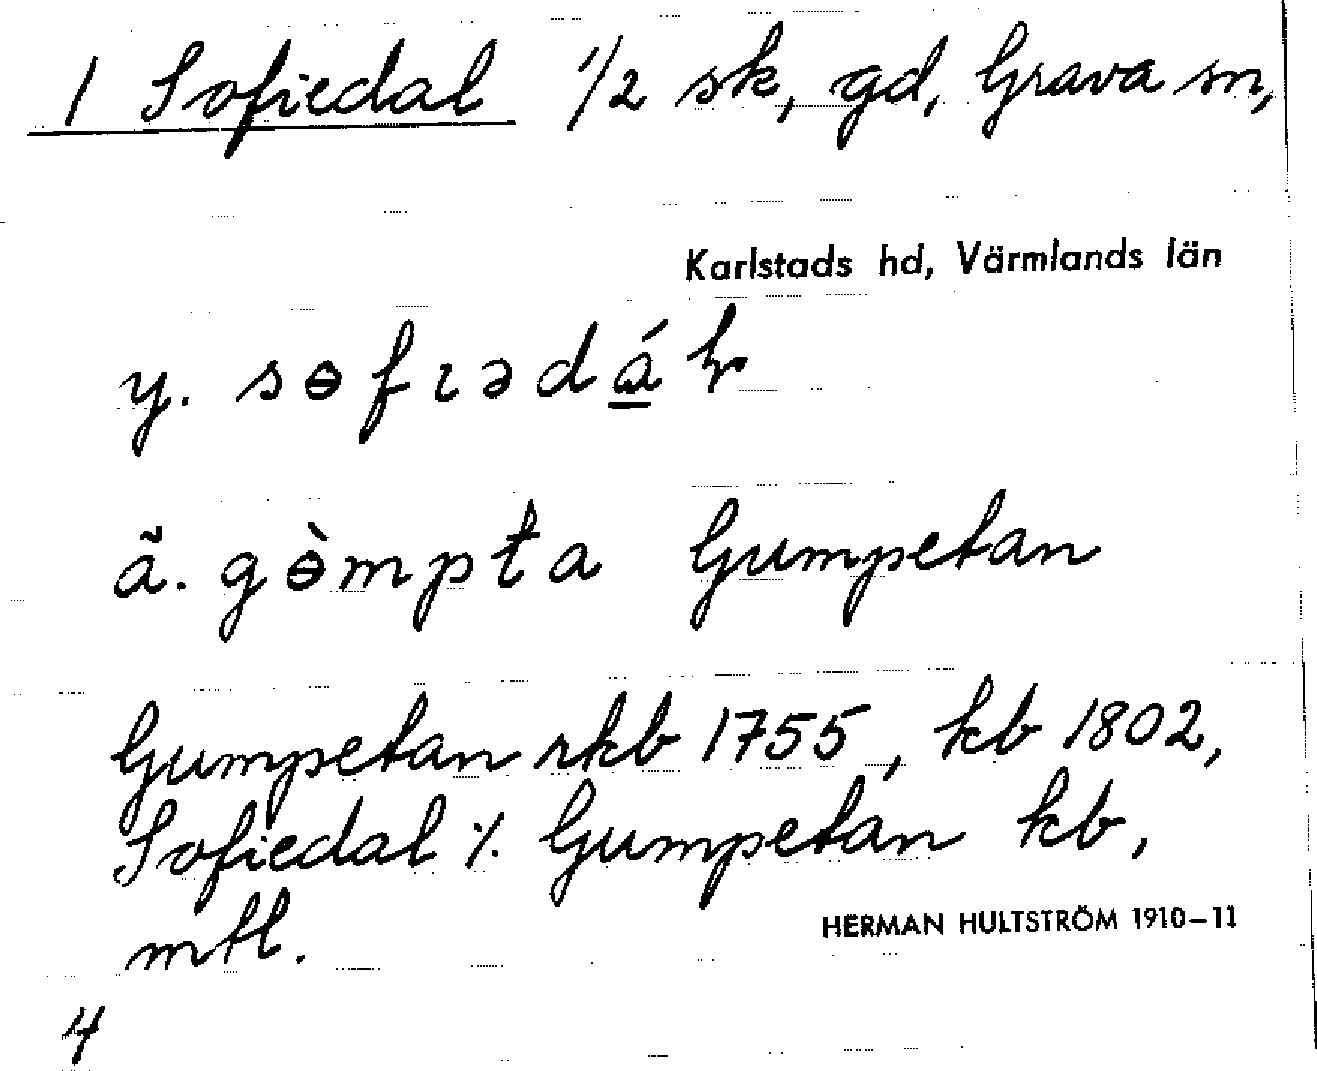 1 Sofiedal 1/2 sk, gd, Grava sn,
Karlstads hd, Värmlands län
y. sɵfɪədá̱ꝉ
ã. gɵ̀mpŧa Gumpetan
Gumpetan rkb 1755, kb 1802,
Sofiedal ⁒ Gumpetan kb,
mtl.
HERMAN HULTSTRÖM 1910–11
4